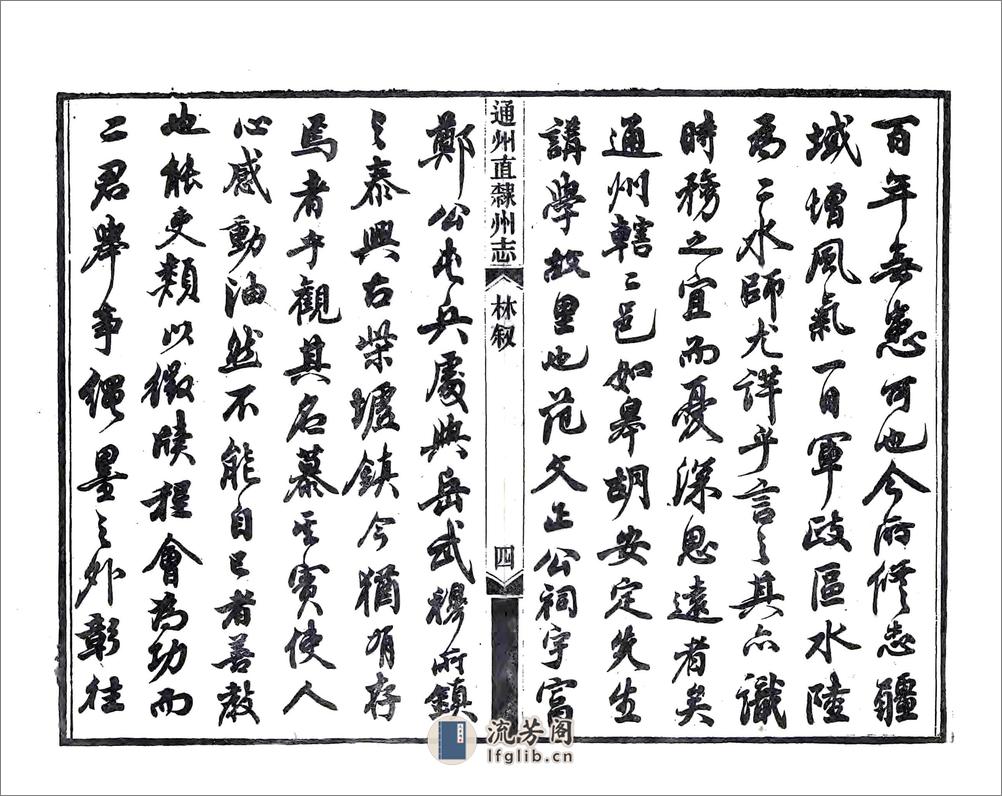 百年無患可也今所修志疆
域增風氣一目軍政區水陸
為二水師尤詳乎言之其亦識
時務之宜而憂深思遠者矣
通州轄二邑如皋胡安定先生
講學故里也范文正公祠宇富
通州直隸州志
林叙
四
鄭公屯兵處與岳武穆所鎮
之泰興古柴墟鎮今猶有存
焉者乎觀其名慕其實使人
心感動油然不能自已者善教
也能吏類以徵牘程會為功而
二君舉事繩墨之外彰往
流芳阁
lfglib.cn